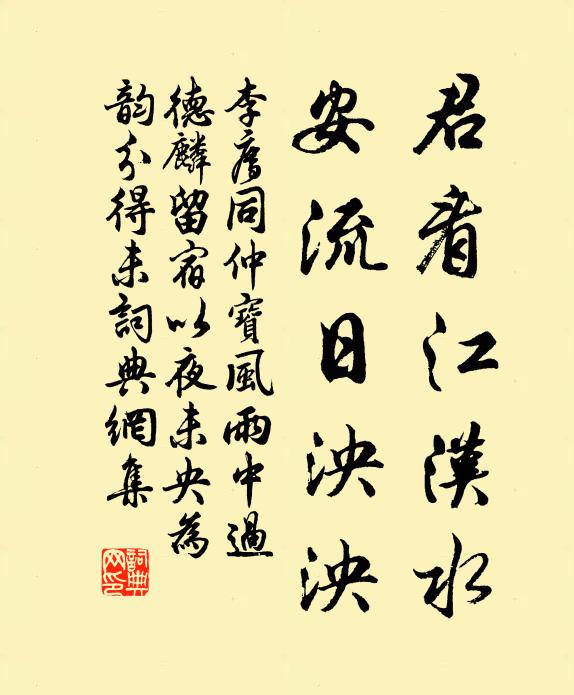 君看江漢水
安流日泱泱
李廌同仲寶風雨中過
德麟留宿以夜未央為
韵分得未詞典網集
詞典網印